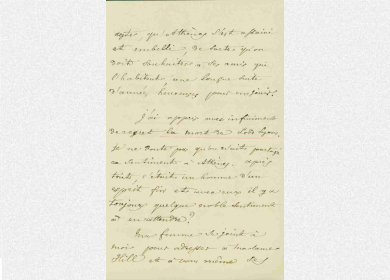 qu'Athènes s'est aplani
et embelli, de sorte qu'on
doit souhaiter à ses amis qui
l'habitent, une longue suite
d'années heureuses pour en jouir!
J'ai appris avec infiniment
de regret la mort de Lord Lyons,
je ne doute pas qu'on n'ait partagé
ce sentiment à Athènes, après
tout, c'était un homme d'un
esprit fin et avec eux il y a
toujours quelque noble sentiment
à en attendre!
Ma femme se joint à
moi pour adresser à Madame
Hill et à vous même